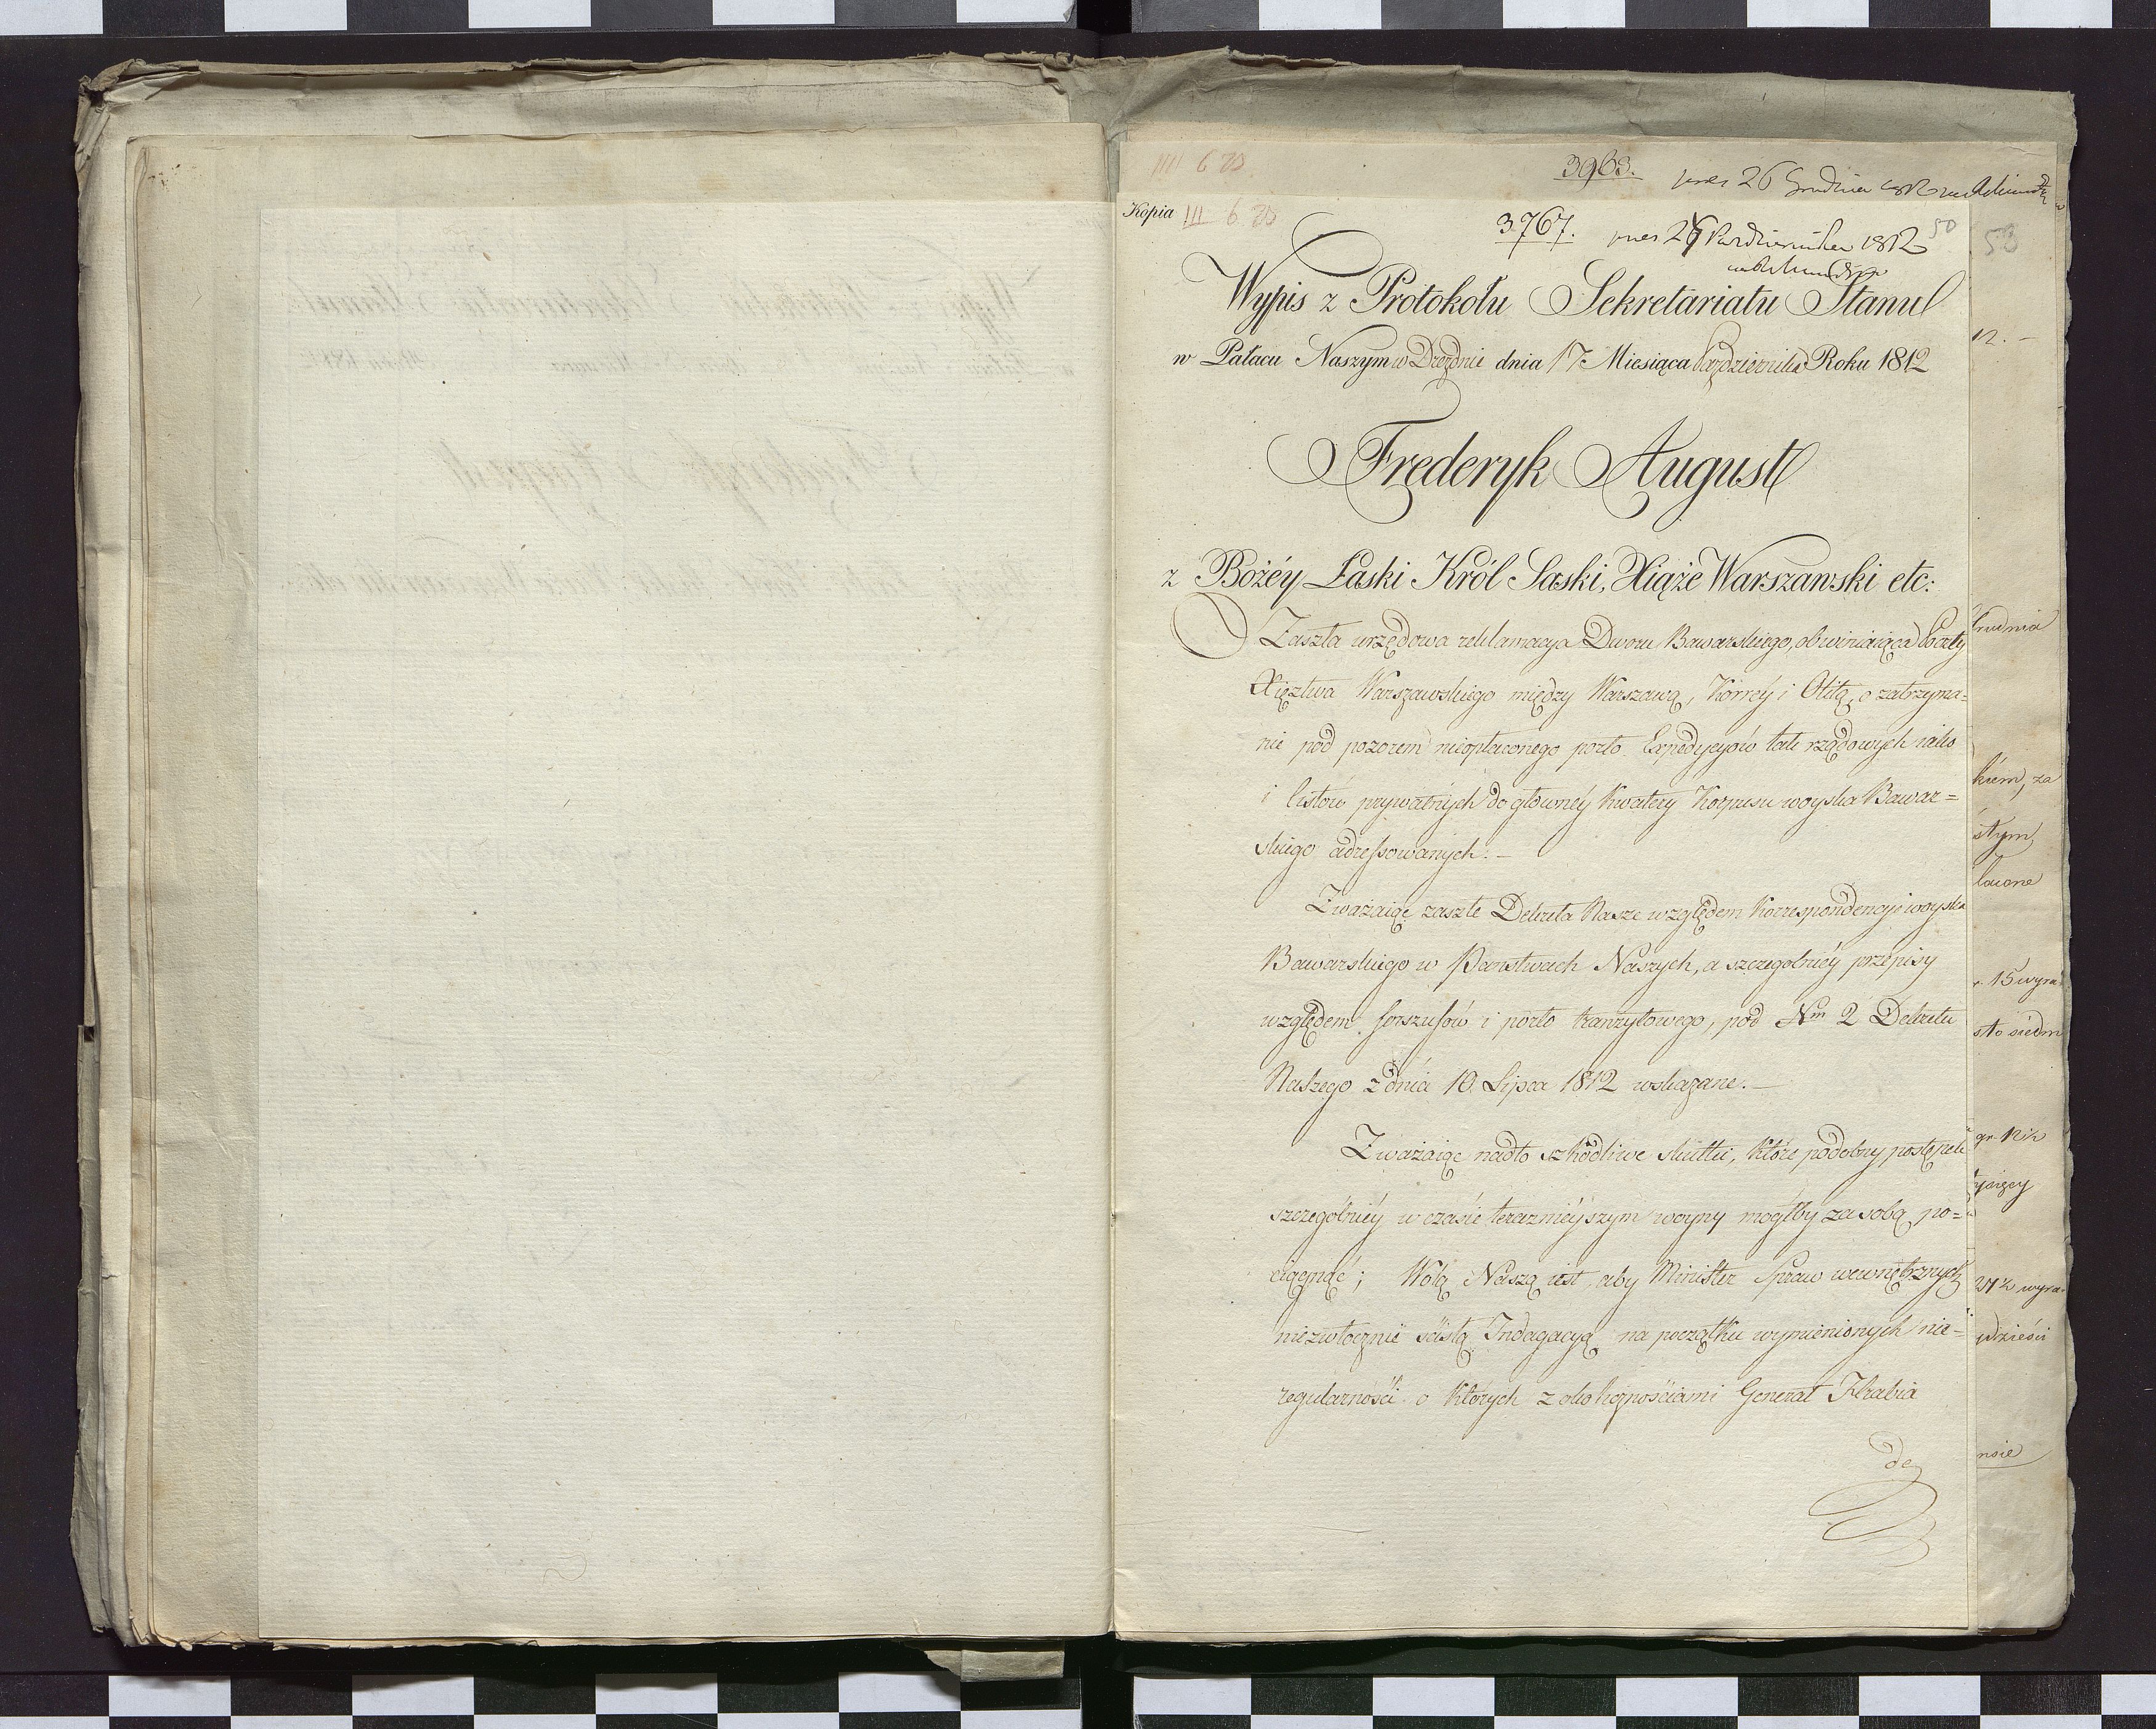 3963. pres 26 Grudnia 1812
Kopia III 6 20
3767. pres 26 Października 1812
50
58
Wypis z Protokołu Sekretariatu Stanu
w Pałacu Naszym w Dreźnie dnia 17 Miesiąca Października Roku 1812
Frederyk August
z Bożéy Łaski Król Saski, Xiąże Warszawski etc:
Zaszła urzędowa reklamacya Dworu Bawarskiego, obwiniaiąca Poczty
Xięztwa Warszawskiego między Warszawą, i Olitą, o zatrzyma=
nie pod pozorem nieopłaconego porto Expedycyów tak rządowych iako
i listów prywatnych do głównéy Kwatery Korpusu woyska Bawar=
skiego adressowanych. –
Zważaiąc zaszłe Dekreta Nasze względem Korrespondencyi woyska
Bawarskiego w Państwach Naszych, a szczegolniéy przepisy
względem forszusów i porto tranzytowego, pod Nm 2 Dekretu
Naszego z dnia 10 Lipca 1812 wskazane. –
Zważaiąc nadto szkodliwe skutki, które podobny postępek
szczególniéy w czasie teraznieyszym woyny mógłby za sobą po=
ciągnąć; Wolą Naszą iest aby Minister Spraw wewnętrznych
niezwłocznie scisłą Indagacyą na początku wymienionych nie=
regularności o których z okolicznościami Generał Hrabia
de
12. –
Grudnia
kiem, za
stym
łacone
15 wyra
sto siedm
gr.
tysięcy
wyra
dzieści
nsie